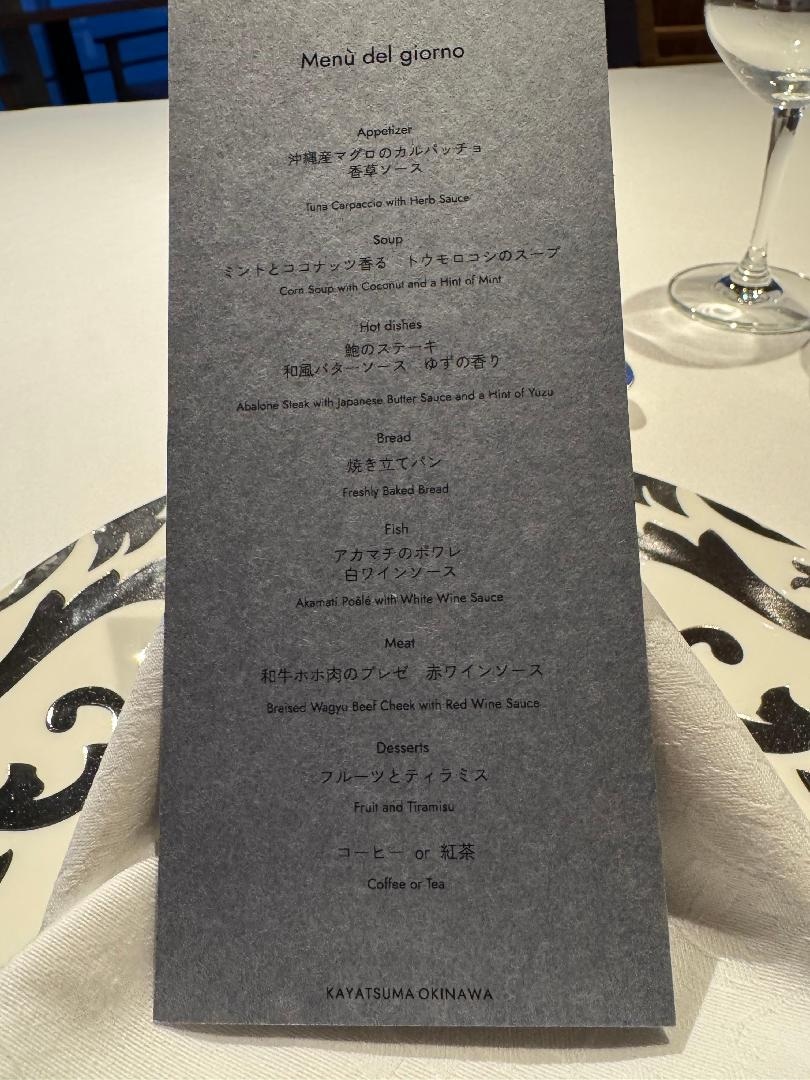 Menù del giorno
Appetizer
沖縄産マグロのカルパッチョ
香草ソース
Tuna Carpaccio with Herb Sauce
Soup
ミントとココナッツ香る　トウモロコシのスープ
Corn Soup with Coconut and a Hint of Mint
Hot dishes
鮑のステーキ
和風バターソース　ゆずの香り
Abalone Steak with Japanese Butter Sauce and a Hint of Yuzu
Bread
焼き立てパン
Freshly Baked Bread
Fish
アカマチのポワレ
白ワインソース
Akamati Poêlé with White Wine Sauce
Meat
和牛ホホ肉のブレゼ　赤ワインソース
Braised Wagyu Beef Cheek with Red Wine Sauce
Desserts
フルーツとティラミス
Fruit and Tiramisu
コーヒー or 紅茶
Coffee or Tea
KAYATSUMA OKINAWA